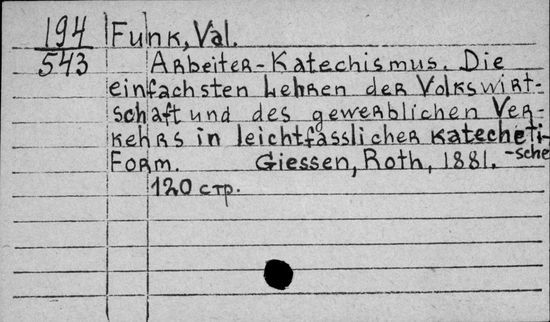 194 Funk, Val.
543 Arbeiter-Katechismus. Die
einfachsten Lehren der Volkswirt-
schaft und des gewerblichen Ver-
kehrs in leichtfasslicher katecheti-
-sche
Form. Giessen, Roth, 1881.
120 стр.